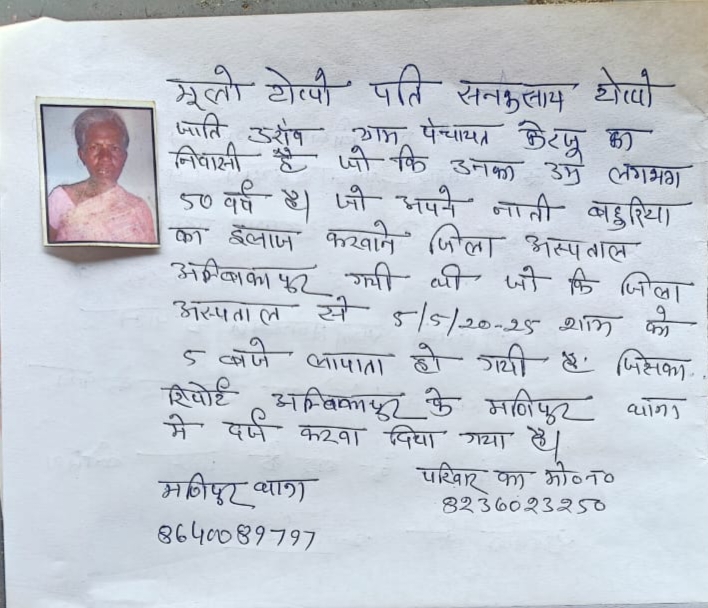 मूलो टोप्पो पति सनकुसाय टोप्पो
जाति उराँव ग्राम पंचायत केरजू का
निवासी है जो कि उनका उम्र लगभग
50 वर्ष है। जो अपने नाती बहुरिया
का इलाज करवाने जिला अस्पताल
अम्बिकापुर गयी थी जो कि जिला
अस्पताल से 5/5/20-25 शाम के
5 बजे लापाता हो गयी है जिसका
रिपोर्ट अम्बिकापुर के मणिपुर थाना
मे दर्ज करवा दिया गया है।
मणिपुर थाना
8640089797
परिवार का मो०न०
8236023250